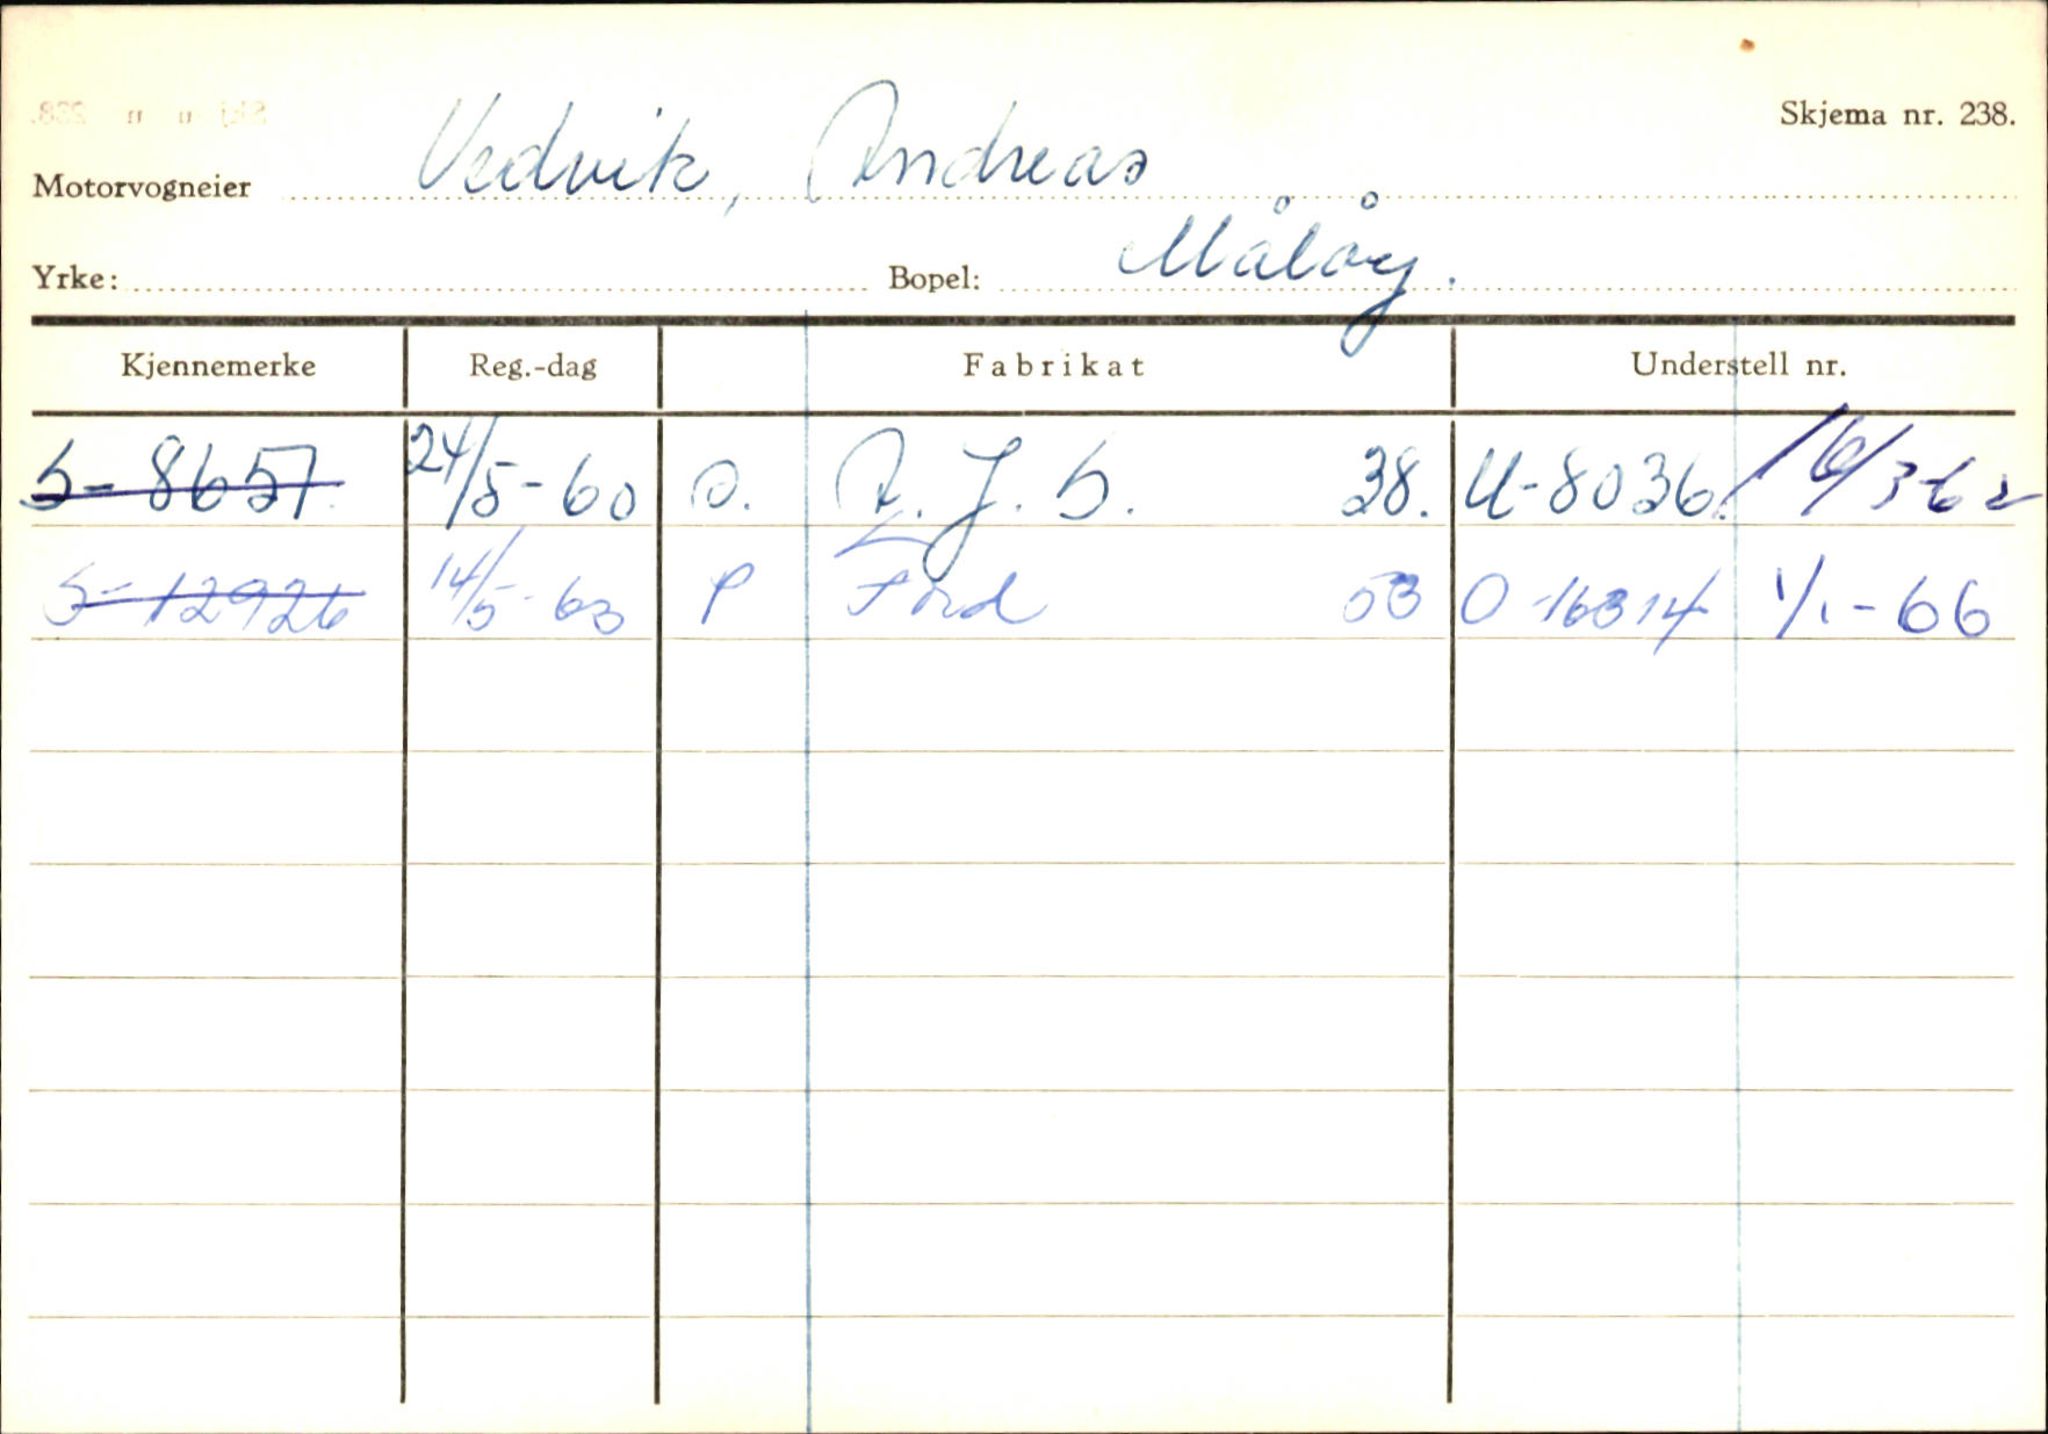 Skjema nr. 238.
Motorvogneier Vedvik, Andreas
Yrke: Bopel: Måløy.
Kjennemerke Reg.-dag Fabrikat Understell nr.
S-8657. 24/5-60 A.J.S. 38. U-8036. 16/3-62
S-12926 14/5-63 P Ford 53 O-16314 1/1-66